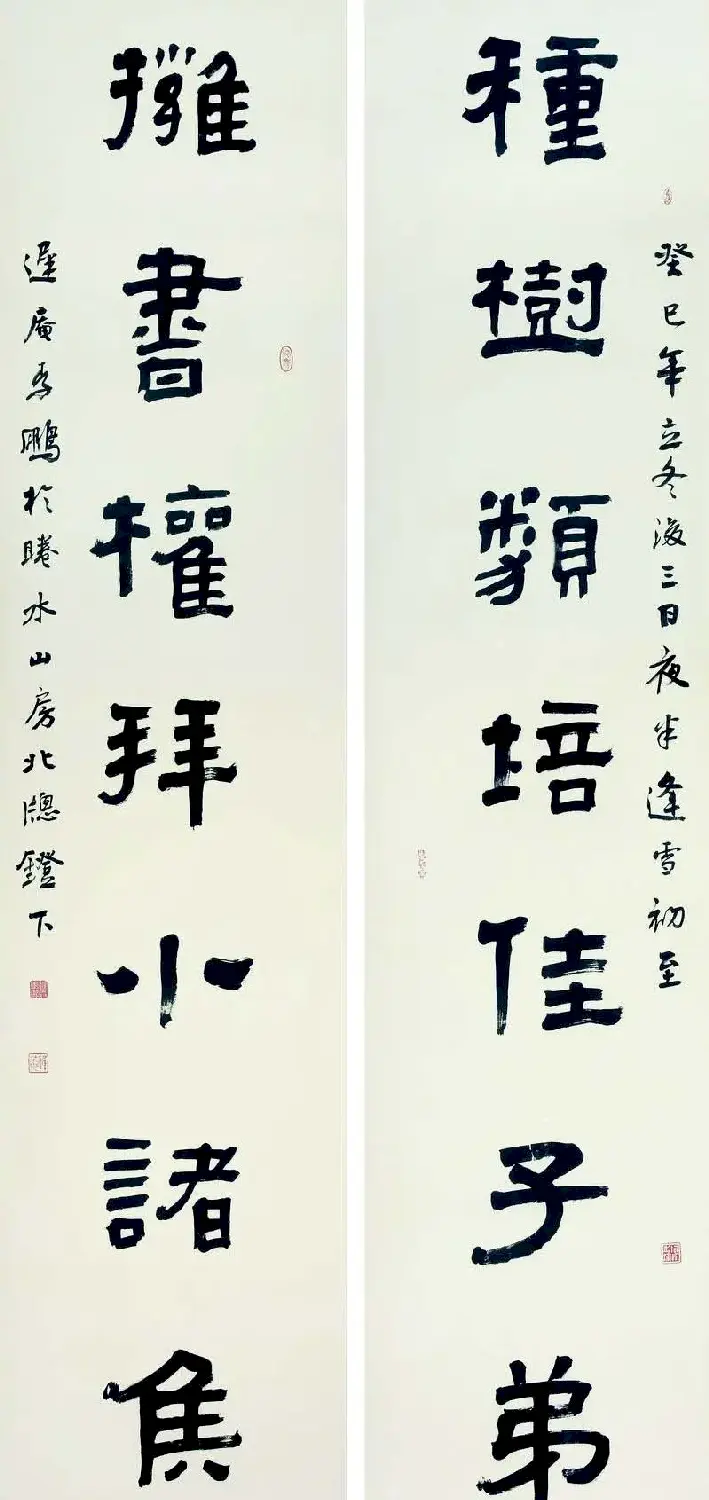 種樹類培佳子弟
癸巳年立冬後三日夜半逢雪初至
擁書權拜小諸侯
遲庵李鵬於睫水山房北窗鐙下